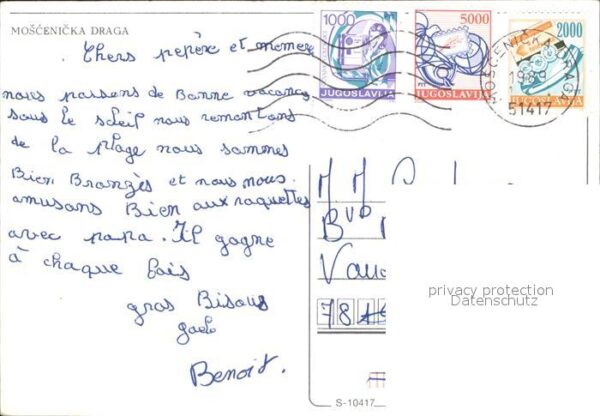 MOŠĆENIČKA DRAGA
Chers pepère et memere
nous passons de Bonne vacances
sous le soleil nous remontons
de la plage nous sommes
Bien Bronzés et nous nous
amusons Bien aux raquettes
avec papa. Il gagne
à chaque fois
gros Bisous
Gael
Benoit.
1000
JUGOSLAVIJA
5000
JUGOSLAVIJA
2000
JUGOSLAVIJA
MOŠĆENIČKA DRAGA
1989
51417
M M
Bvd
78
privacy protection
Datenschutz
S-10417